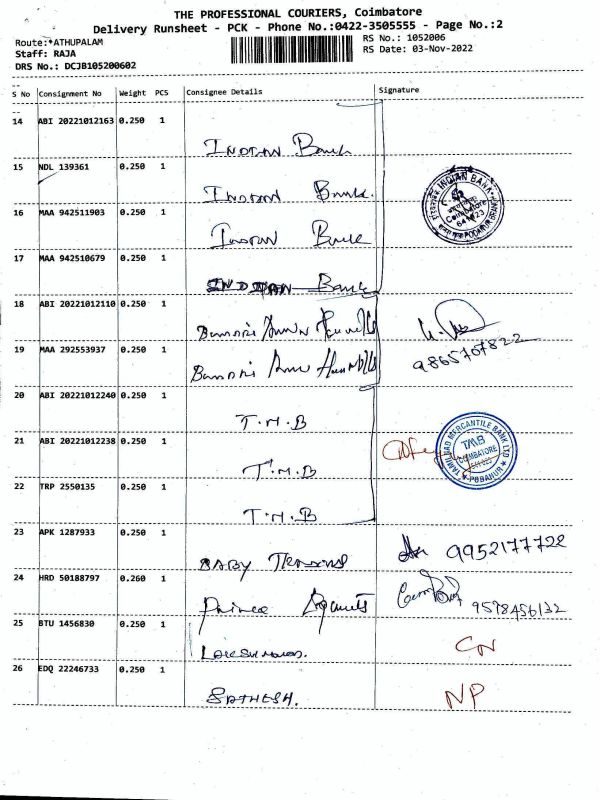 THE PROFESSIONAL COURIERS, Coimbatore
Delivery Runsheet - PCK - Phone No.:0422-3505555 - Page No.:2
Route:*ATHUPALAM
Staff: RAJA
DRS No.: DCJB105200602
RS No.: 1052006
RS Date: 03-Nov-2022
S No Consignment No Weight PCS Consignee Details Signature
14 ABI 20221012163 0.250 1
INDIAN Bank
15 NDL 139361 0.250 1
INDIAN Bank.
16 MAA 942511903 0.250 1
INDIAN Bank
17 MAA 942510679 0.250 1
INDIAN Bank
INDIAN BANK
Coimbatore
PODANUR BRANCH
18 ABI 20221012110 0.250 1
Bannari Amman
19 MAA 292553937 0.250 1
Bannari Amman
9865707822
20 ABI 20221012240 0.250 1
T.M.B
21 ABI 20221012238 0.250 1
T.M.B
TAMILNAD MERCANTILE BANK LTD
TMB
COIMBATORE
PODANUR
22 TRP 2550135 0.250 1
T.M.B
23 APK 1287933 0.250 1
BABY
9952177728
24 HRD 50188797 0.260 1
Prince
9578456132
25 BTU 1456830 0.250 1
CN
26 EDQ 22246733 0.250 1
SATHESH.
NP